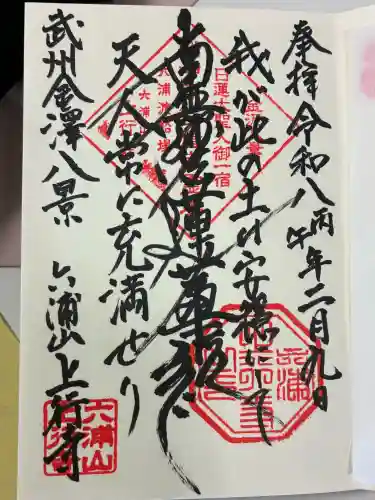 奉拝 令和八丙午年二月九日
我が此の土は安穏にして
南無妙法蓮華経
天人常に充満せり
武州金澤八景 六浦山上行寺
日蓮大聖人御一宿
六浦山